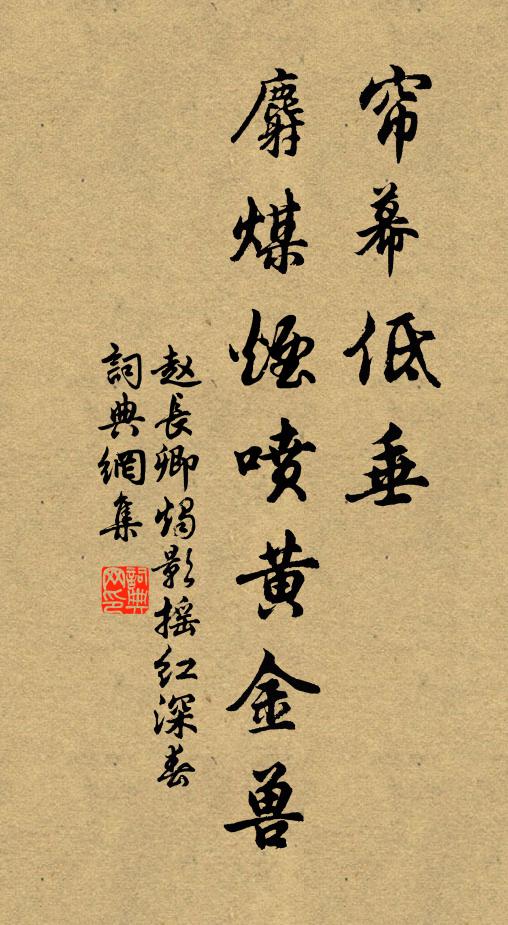 帘幕低垂
麝煤烟喷黄金兽
赵長卿燭影摇红深春
詞典網集
詞典
网印